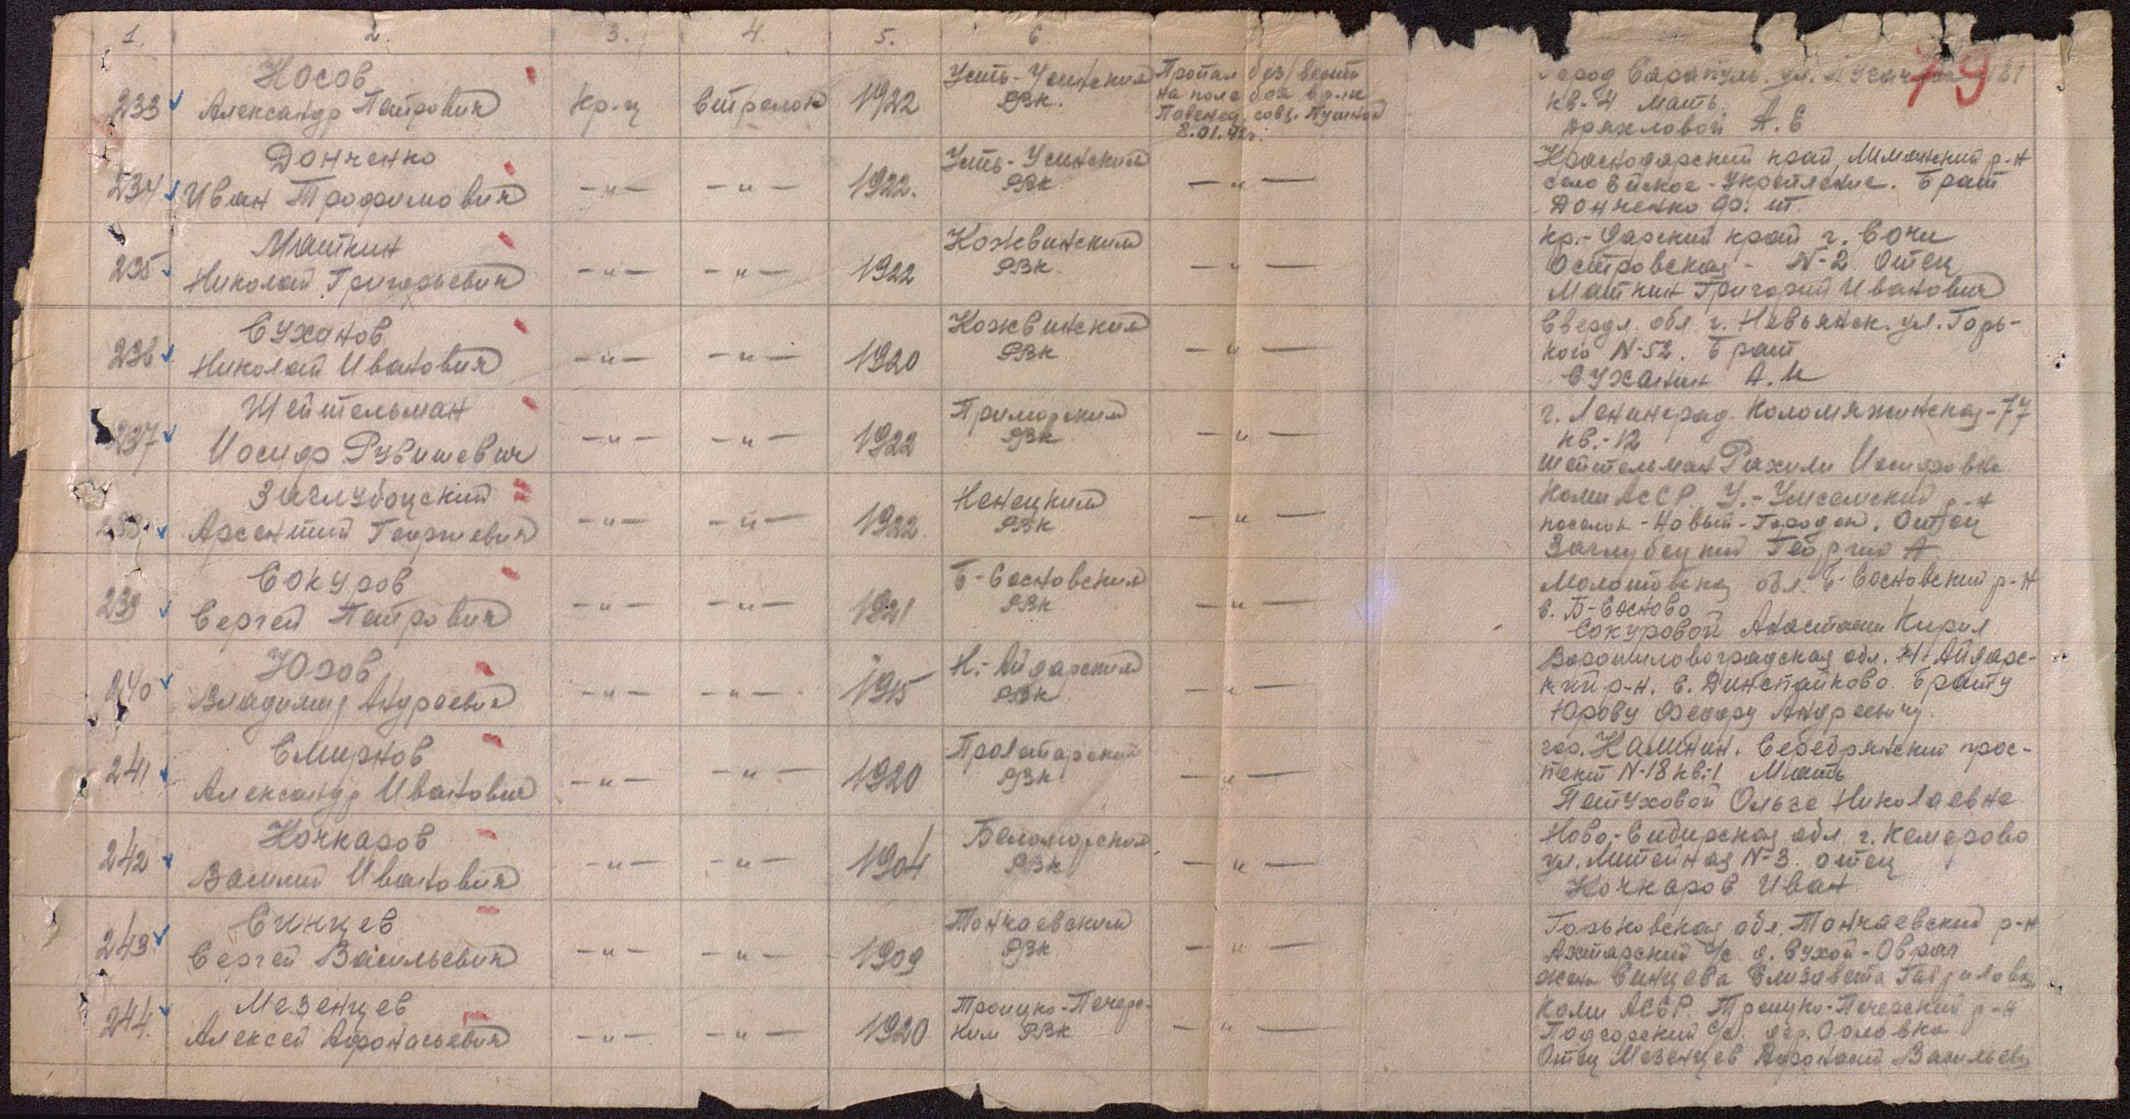 1. 2. 3. 4. 5. 6
79
233 Носов Александр Петрович кр-ц Стрелок 1922 Усть-Усинский РВК. Пропал без вести на поле боя в р-не Повенец, совх. Пушной 8.01.42г. город Сарапуль. ул.
кв-4 Мать
А. Е
234 Донченко Иван Трофимович —"— —"— 1922. Усть-Усинский РВК —"— Краснодарский край, Лиманский р-н
село Ейское-Укрепление. Брат
Донченко Ф. ит.
235 Маткин Николай Григорьевич —"— —"— 1922 Кожвинский РВК. —"— Кр.-дарский край г. Сочи
Островская - N-2 Отец
Маткин Григорий Иванович
236 Суханов Николай Иванович —"— —"— 1920 Кожвинский РВК —"— Свердл. обл. г. Невьянск. ул. Горь-
кого N-52. Брат
А. И
237 Шейтельман Иосиф Рувимевич —"— —"— 1922 Приморский РВК —"— г. Ленинград Коломяжинская-77
кв.-12
Шейтельман Рахили Иосифовне
238 Заглубоцкий Арсентий Георгиевич —"— —"— 1922. Ненецкий РВК —"— Коми АССР. У.-Усинский р-н
поселок-Новый-Городок. Отец
Заглубоцкий Георгий А
239 Сокуров Сергей Петрович —"— —"— 1921 Б-Сосновский РВК —"— Молотовская обл. Б-Сосновский р-н
с. Б-Сосново
Сокуровой Анастасии Кирил
240 Юров Владимир Андреевич —"— —"— 1915 Н.-Айдарский РВК —"— Ворошиловоградская обл. Н-Айдарс-
кий р-н. с. Брату
Юрову Федору Андреевичу
241 Смирнов Александр Иванович —"— —"— 1920 Пролетарский РВК —"— гор. Калинин. Серебрянский прос-
пект N-18 кв-1 Мать
Петуховой Ольге Николаевне
242 Кочкаров Василий Иванович —"— —"— 1904 Беломорский РВК —"— Ново-Сибирская обл. г. Кемерово
ул. Литейная N-3. отец
Кочкаров Иван
243 Синцев Сергей Васильевич —"— —"— 1909 Тоншаевский РВК —"— Горьковская обл. Тоншаевский р-н
Ахтарский с/с д. Сухой-Овраг
жена Синцева Елизавета Гавриловна
244. Мезенцев Алексей Афонасьевич —"— —"— 1920 Троицко-Печорс-
ким РВК —"— Коми АССР. Троицко-Печерский р-н
с/с. дер. Орловка
Отец Мезенцев Афонасий Васильев